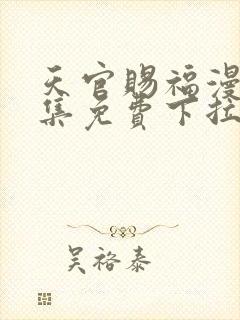 天官赐福漫
集免费下拉
吴裕泰